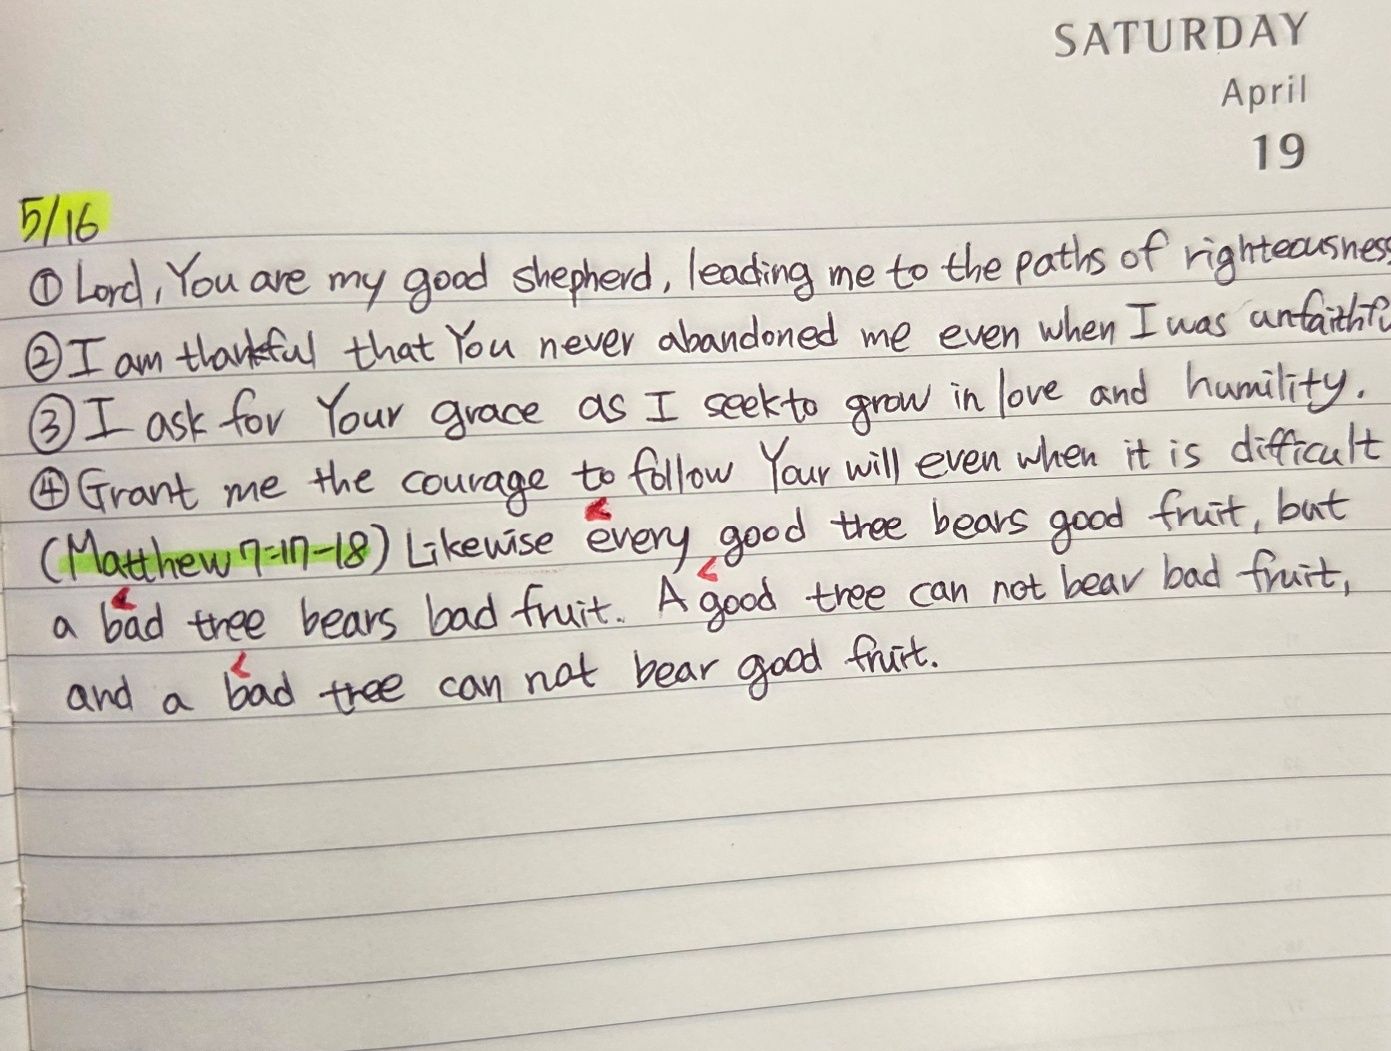 SATURDAY
April
19
5/16
① Lord, You are my good shepherd, leading me to the paths of righteousness
② I am thankful that You never abandoned me even when I was unfaithfu
③ I ask for Your grace as I seek to grow in love and humility.
④ Grant me the courage to follow Your will even when it is difficult
(Matthew 7:17-18) Likewise every good tree bears good fruit, but
a bad tree bears bad fruit. A good tree can not bear bad fruit,
and a bad tree can not bear good fruit.